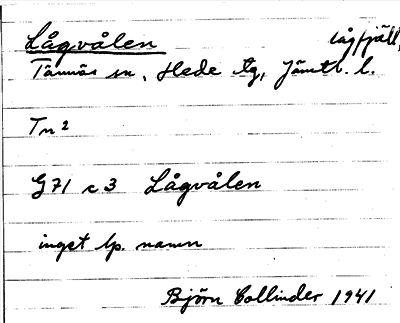 Lågvålen lågfjäll,
Tännäs sn, Hede tg, Jämtl. l.
Tn 2
G 71 c 3 Lågvålen
inget lp. namn
Björn Collinder 1941